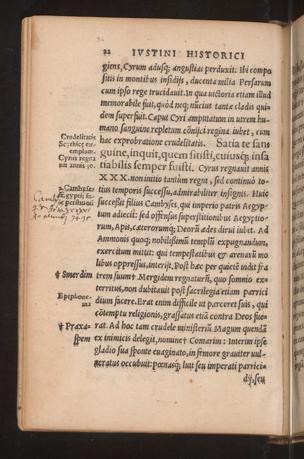 22 IVSTINI HISTORICI
giens, Cyrum adusq; angustias perduxit. Ibi compo
sitis in montibus insidijs, ducenta milia Persarum
cum ipso rege trucidauit. In qua uictoria etiam illud
memorabile fuit, quòd neq; nūcius tantæ cladis qui
dem superfuit. Caput Cyri amputatum in utrem hu-
mano sanguine repletum cōijci regina iubet, cum
hac exprobratione crudelitatis. Satia te san
guine, inquit, quem sitisti, cuiusq; insa
tiabilis semper fuisti. Cyrus regnauit annis
XXX. non initio tantùm regni, sed continuo to
tius temporis successu, admirabiliter insignis. Huic
successit filius Cambyses, qui imperio patris Aegyp-
tum adiecit: sed offensus superstitionibus Aegyptio-
rum, Apis, cæterorumq; Deorū ædes dirui iubet. Ad
Ammonis quoq; nobilissimū templū expugnandum,
exercitum mittit: qui tempestatibus & arenarū mo
libus oppressus, interijt. Post hæc per quietē uidit fra
trem suum † Mergidem regnaturū, quo somnio ex-
territus, non dubitauit post sacrilegia etiam parrici
dium facere. Erat enim difficile ut parceret suis, qui
cōtemptu religionis, grassatus etiā contra Deos fue-
rat. Ad hoc tam crudele ministeriū Magum quendā
ex amicis delegit, nomine † Comarim: Interim ipse
gladio sua sponte euaginato, in femore grauiter uul-
neratus occubuit: pœnasq; luit seu imperati parrici-
dij, seu
Crudelitatis
Scythicę ex-
emplum.
Cyrus regna
uit annis 30.
Cambyses
† Smerdim
† Praxa-
spem